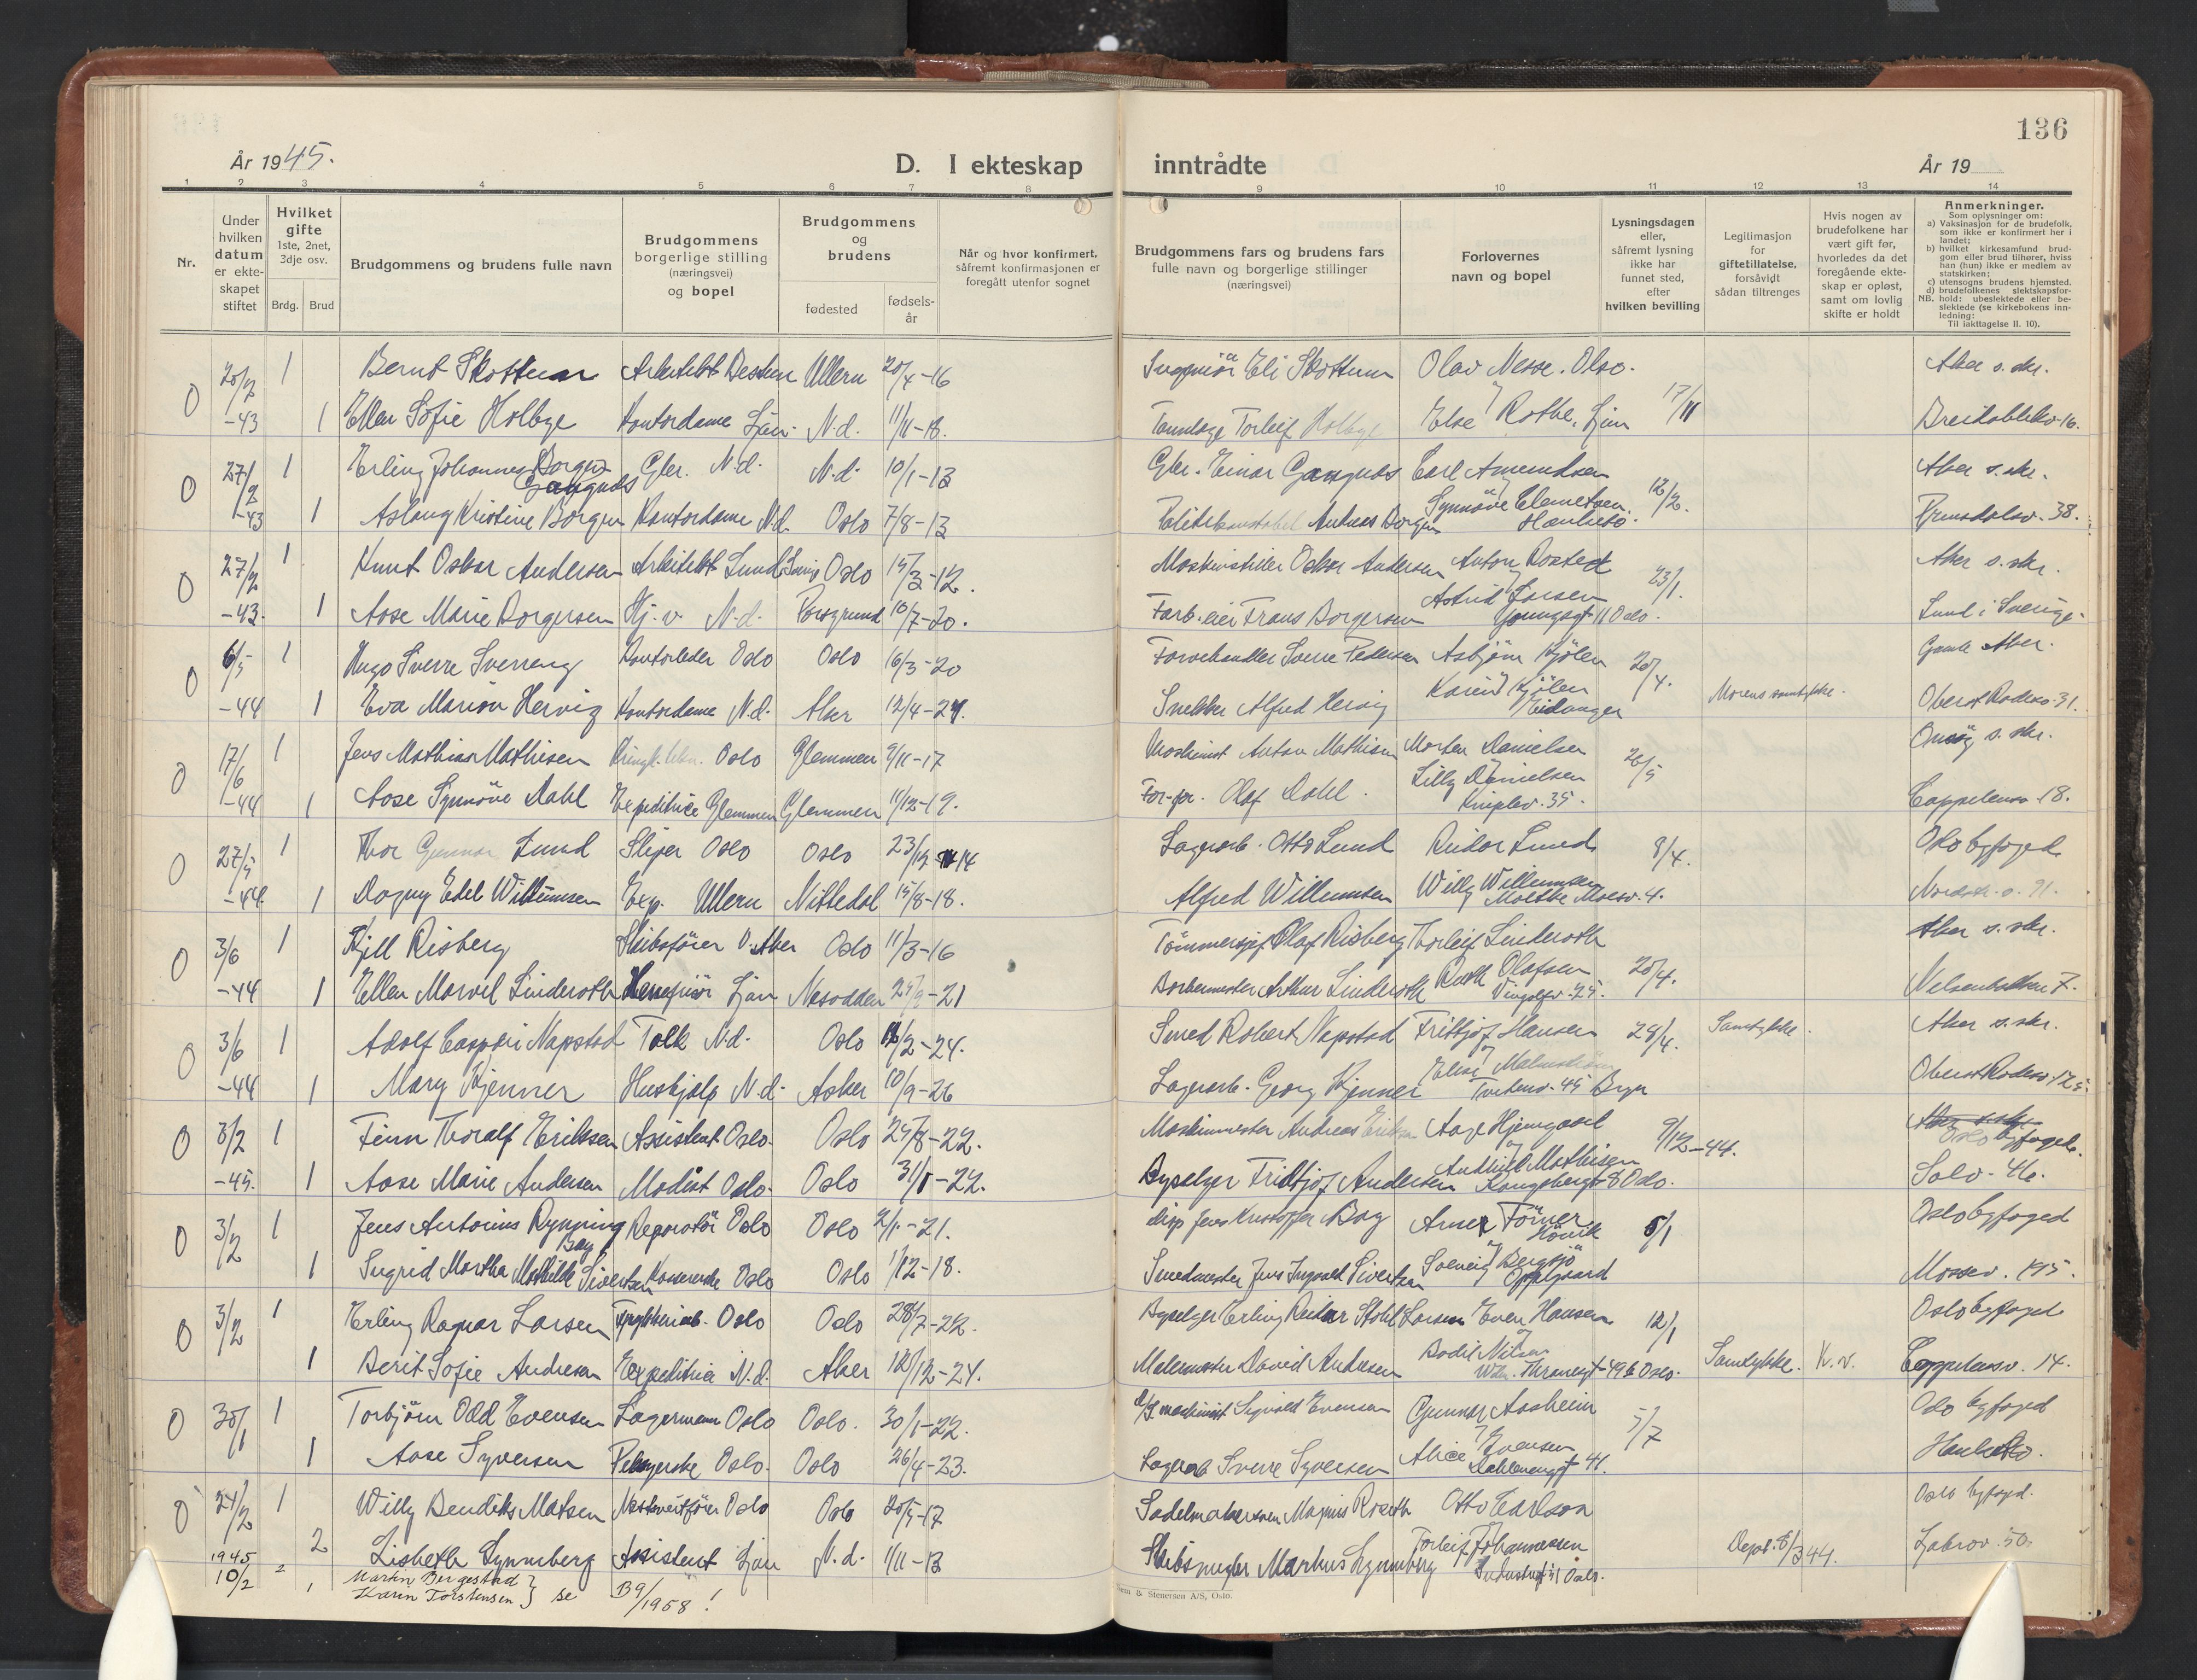 136
År 1945.
D. I ekteskap inntrådte
År 19
1 2 3 4 5 6 7 8 9 10 11 12 13 14
Nr.
Under hvilken datum er ekte-skapet stiftet
Hvilket gifte 1ste, 2net, 3dje osv.
Brdg. Brud
Brudgommens og brudens fulle navn
Brudgommens borgerlige stilling (næringsvei) og bopel
Brudgommens og brudens
fødested
fødsels-år
Når og hvor konfirmert, såfremt konfirmasjonen er foregått utenfor sognet
Brudgommens fars og brudens fars fulle navn og borgerlige stillinger (næringsvei)
Forlovernes navn og bopel
Lysningsdagen eller, såfremt lysning ikke har funnet sted, efter hvilken bevilling
Legitimasjon for giftetillatelse, forsåvidt sådan tiltrenges
Hvis nogen av brudefolkene har vært gift før, hvorledes da det foregående ekte-skap er opløst, samt om lovlig skifte er holdt
Anmerkninger.
Som oplysninger om:
a) Vaksinasjon for de brudefolk, som ikke er konfirmert her i landet;
b) hvilket kirkesamfund brud-gom eller brud tilhører, hviss han (hun) ikke er medlem av statskirken;
c) utensogns brudens hjemsted.
d) brudefolkenes slektskapsfor-hold: ubeslektede eller be-slektede (se kirkebokens inn-ledning:
NB. Til iakttagelse II. 10).
O 20/2 1 Bernt Skottum Arkitekt Bestum Ullern 20/4-16 Eli Skottum Olav Nesse. Olso. Aker s. skr.
-43 1 Ellen Sofie Holbye Kontordame Ljan. N.d. 11/11-18. Tannlege Torleif Holbye Else Rothe, Ljan 17/11 Breidablikv. 16.
O 27/2 1 Erling Johannes Borgen Gangnæs Gbr. N.d. N.d. 10/1-13 Gbr. Einar Gangnæs Carl Amundsen Aker s. skr.
-43 1 Aslaug Kristine Borgen Kontordame N.d. Oslo 7/8-13 Politikonstabel Andreas Borgen Synnöve Clemetsen 12/2. Prinsdalsv. 38.
O 27/2 1 Knut Oskar Andersen Arkitekt Lund Sverige Oslo 15/3-12. Maskinstiller Oskar Andersen Anton Rosted Aker s. skr.
-43. 1 Aase Marie Borgersen Hj. v. N.d. Porsgrund 10/7-20. Farb. eier Frans Borgersen Astrid Larsen Youngsgt 11 Oslo. 23/1. Lund i Sverige.
O 6/5 1 Hugo Sverre Sverreng Kontorleder Oslo Oslo 16/3-20 Farvehandler Sverre Pedersen Asbjørn Kjölen Gamle Aker.
-44 1 Eva Marion Hervig Kontordame N.d. Aker 12/4-24. Snekker Alfred Hervig Karen Kjölen Eidanger 20/4. Morens samtykke. Oberst Rodesv. 31.
O 17/6 1 Jens Mathias Mathisen Oslo Glemmen 9/11-17 Maskinist Anton Mathisen Morten Danielsen Onsöy s. skr.
-44 1 Aase Synnöve Dahl Expeditrice Glemmen Glemmen 11/12-19. Olaf Dahl. Lilly Danielsen 35. 20/5 Cappelensv. 18.
O 27/5 1 Thor Gunnar Lund Sliper Oslo Oslo 23/12-14 Lagerarb. Otto Lund Reidar Lund 8/4. Oslo byfoged.
-44 1 Dagny Edel Willumsen Exp. Ullern Nittedal 15/8-18. Alfred Willumsen Willy Willumsen Moltke Moesv. 4. Nordstr. v. 91.
O 3/6 1 Kjell Risberg Skibsfører V. Aker Oslo 11/3-16 Olaf Risberg Thorleif Linderoth Aker s. skr.
-44 1 Ellen Marvel Linderoth Ljan Nesodden 25/9-21 Barbermester Arthur Linderoth Ruth Olafsen Vingolfv. 25. 20/4. Nelsonbakken 7.
O 3/6 1 Adolf Caspari Napstad Tolk N.d. Oslo 16/2-24. Smed Robert Napstad Fritjof Hansen 28/4. Samtykke. Aker s. skr.
-44 1 Mary Kjenner Hushjelp N.d. Asker 10/9-26 Lagerarb. Georg Kjenner Elise Malmström Tvetenv. 45 Bryn Oberst Rodesv. 125.
O 3/2 1 Finn Thoralf Eriksen Assistent Oslo. Oslo 25/8-22. Maskinmester Andreas Eriksen Aage Hjemgaard 9/12-44. Oslo byfoged.
-45. 1 Aase Marie Andersen Modist Oslo. Oslo 31/1-22. Byselger Fridtjof Andersen Mathisen Kongsberggt 8 Oslo. Solv. 46.
O 3/2 1 Jens Antonius Rynning Bay Reparatör Oslo Oslo 2/1-21. disp Jens Kristoffer Bay Arne Törner Hövik 5/1 Oslo byfoged
1 Ingrid Martha Mathilde Sivertsen Oslo Oslo 1/12-18. Smedmester Jens Ingvald Sivertsen Solveig Bergsjö Oppegaard Mossev. 195.
O 3/2 1 Erling Ragnar Larsen Oslo Oslo 28/7-22. Byselger Erling Reidar Stokl Larsen Even Hansen 12/1 Oslo byfoged
1 Berit Sofie Andresen Expeditrice N.d. Aker 12/12-24. Malermester David Andresen Bodil Nilsen Wilh. Thranesgt 49b Oslo. Samtykke. K.v. Cappelensv. 14.
O 30/1 1 Torbjörn Odd Evensen Lagermann Oslo Oslo. 30/1-22. maskinist Sigvald Evensen Gunnar Aasheim 5/7 Oslo byfoged
1 Aase Syversen Oslo. Oslo 26/4-23. Lagerarb Sverre Syversen Alice Evensen Dahlenenggt 41.
O 24/2 1 Willy Bendiks Matsen Oslo Oslo 20/5-17 Sadelmakersvenn Magnus Roseth Otto Carlson Oslo byfoged.
1945 2 Lisbeth Lynneberg Assistent Ljan N.d. 1/11-13 Skibsmegler Markus Lynneberg Torleif Johannessen Industrigt 51 Oslo. Dept. 8/3 44. Ljabrov. 50.
10/2 2 1 Martin Bergestad
Karin Torstensen } se B9/1958!
& Stenersen A/S, Oslo.